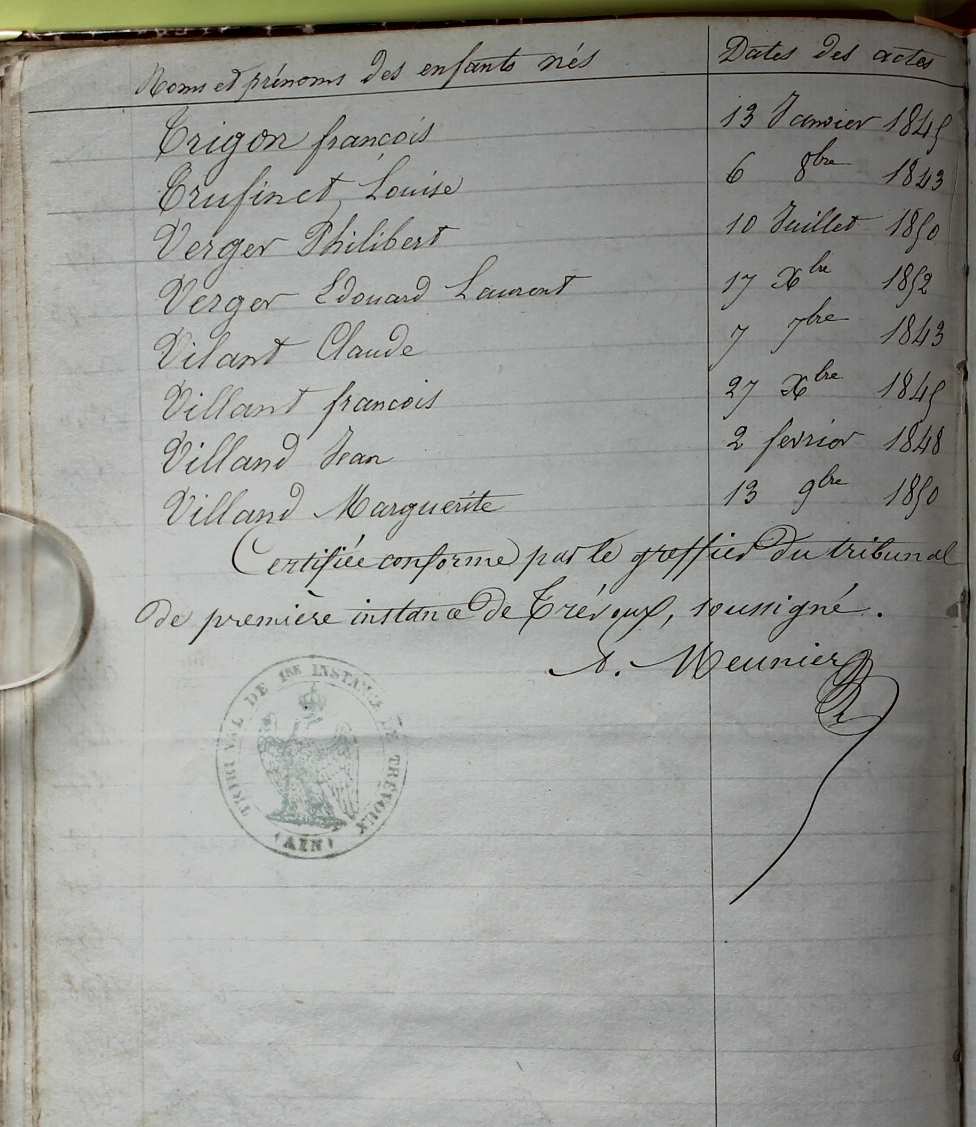 Noms et prénoms des enfants nés Dates des actes
Trigon françois 13 Janvier 1845
Trufinet, Louise 6 8bre 1843
Verger Philibert 10 Juillet 1850
Verger Edouard Laurent 17 Xbre 1852
Vilant Claude 7 7bre 1843
Villant françois 27 Xbre 1845
Villand Jean 2 fevrier 1848
Villand Marguerite 13 9bre 1850
Certifiée conforme par le greffier du tribunal
de première instance de Trévoux, soussigné.
A. Meunier
TRIBUNAL DE 1RE INSTANCE DE TRÉVOUX
(AIN)